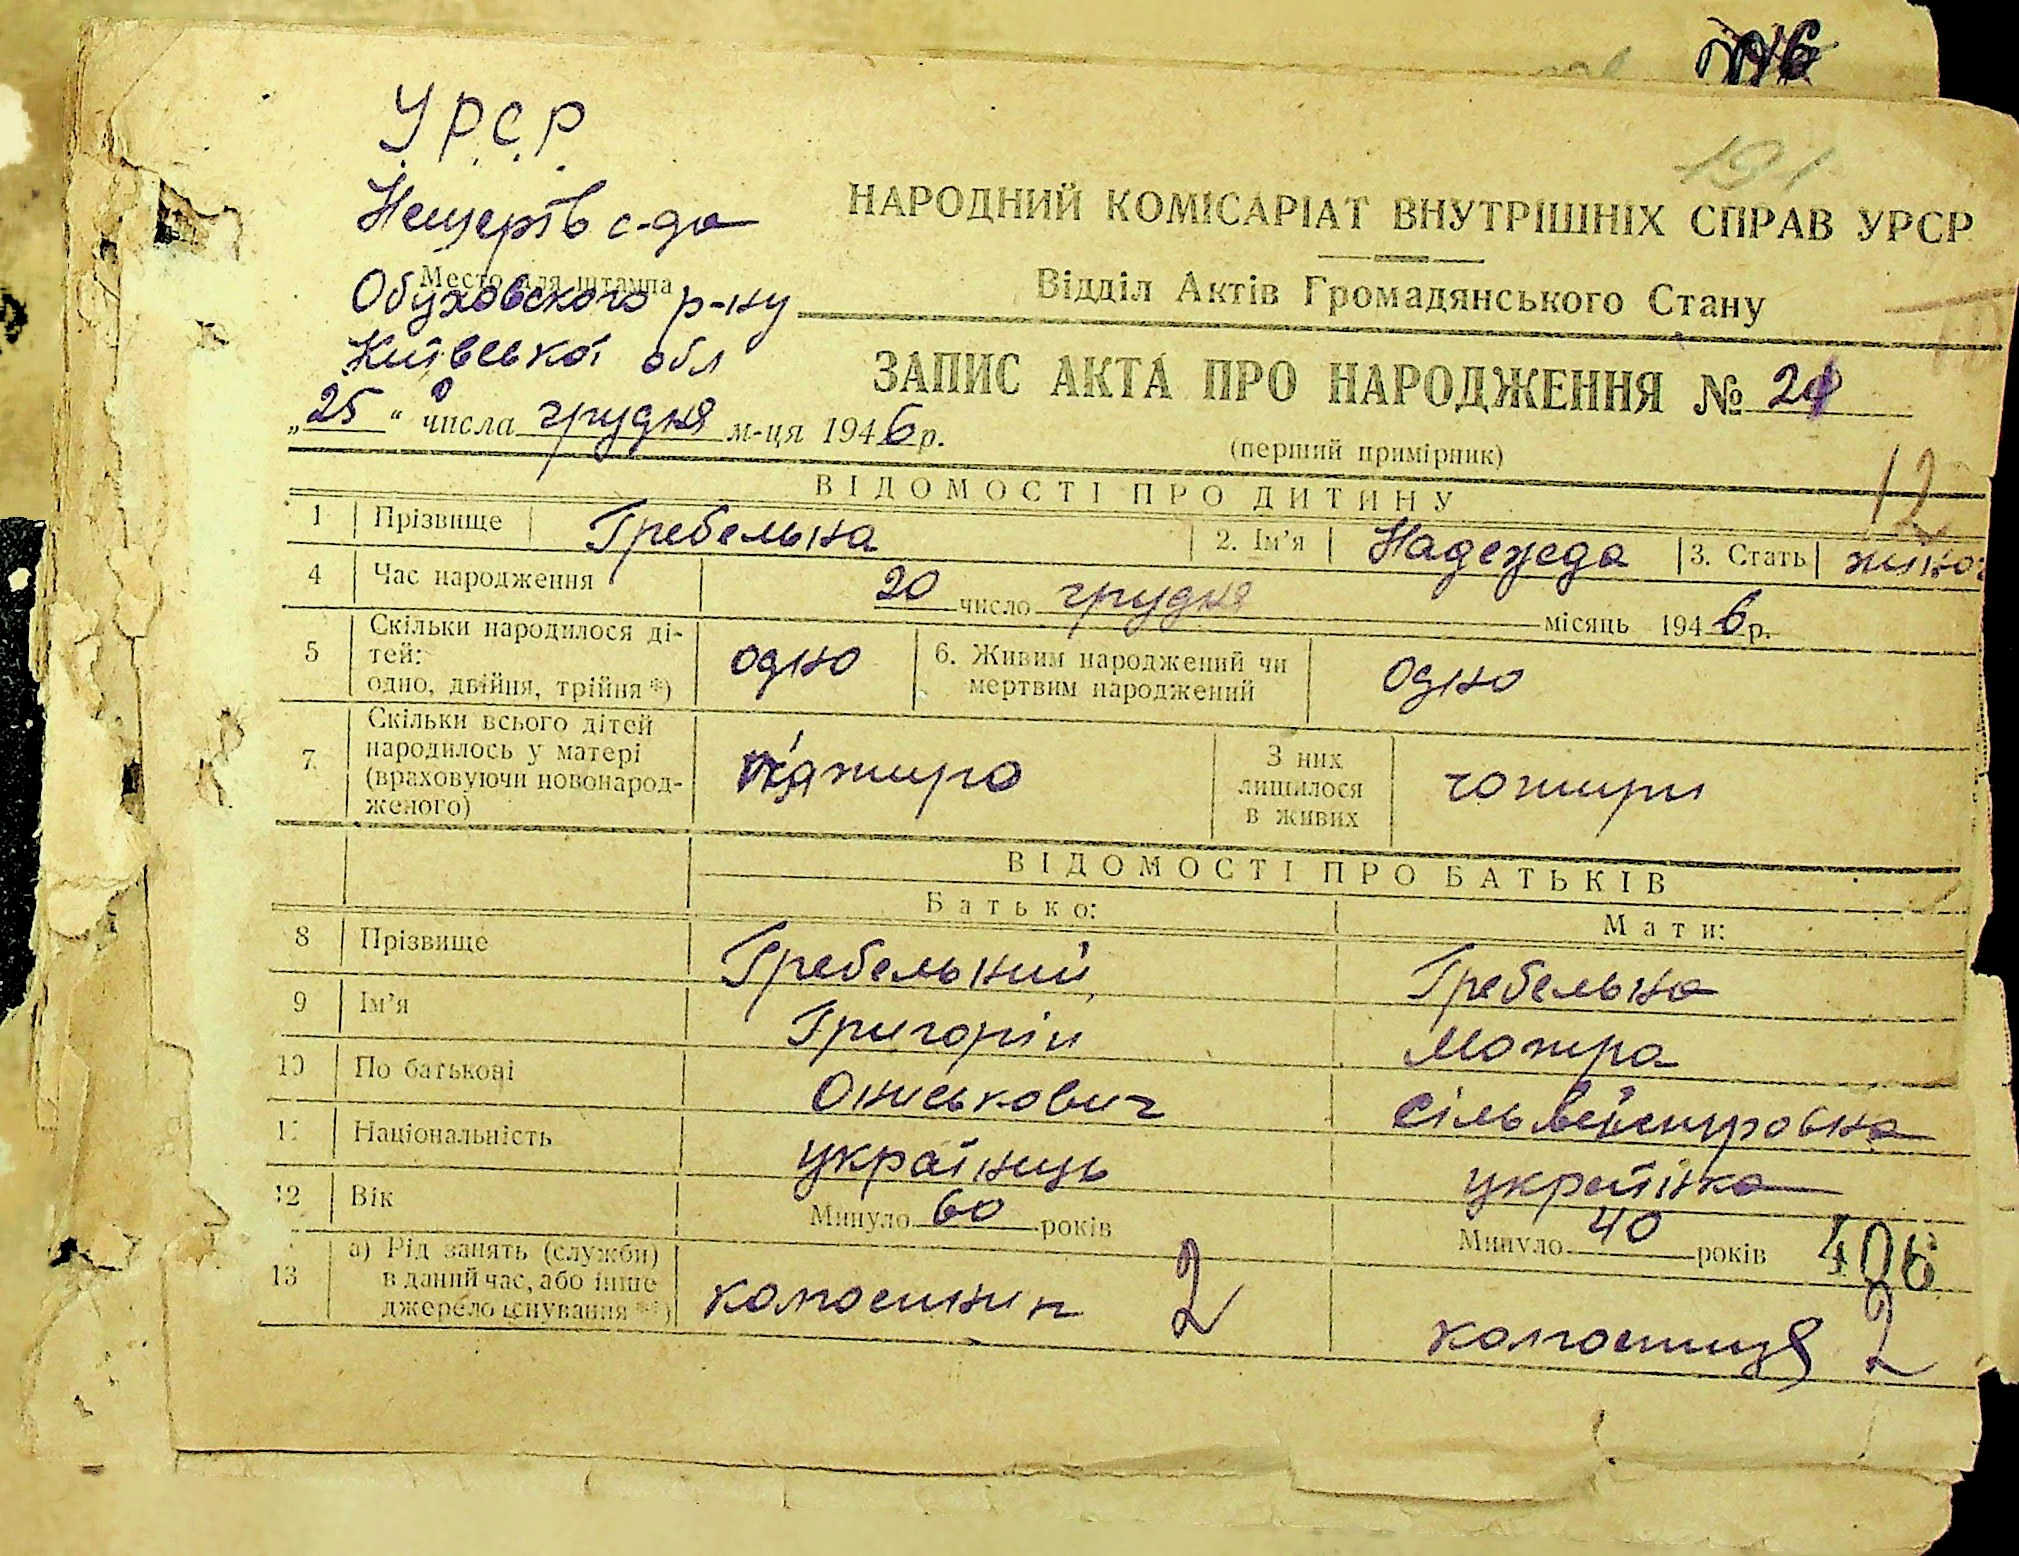 УРСР
191
Нещерів с-да
НАРОДНИЙ КОМІСАРІАТ ВНУТРІШНІХ СПРАВ УРСР
Место для штампа
Відділ Актів Громадянського Стану
Обуховского р-ну
Київської обл
ЗАПИС АКТА ПРО НАРОДЖЕННЯ №
„25“ числа грудня м-ця 1946 р.
(перший примірник)
12
ВІДОМОСТІ ПРО ДИТИНУ
1 Прізвище Гребельна 2. Ім’я Надежда 3. Стать жіноч
4 Час народження 20 число грудня місяць 1946 р.
5 Скільки народилося ді-
тей:
одно, двійня, трійня *) одно 6. Живим народжений чи
мертвим народжений одно
7. Скільки всього дітей
народилось у матері
(враховуючи новонарод-
женого)
З них
лишилося
в живих чотири
ВІДОМОСТІ ПРО БАТЬКІВ
Батько: Мати:
8 Прізвище Гребельний Гребельна
9 Ім’я Григорій Мотра
10 По батькові Ониськович Сільвейстровна
11 Національність українець українка
12 Вік Минуло 60 років Минуло 40 років 406
13 а) Рід занять (служби)
в даний час, або інше
джерело існування **) колгоспник 2 колгоспниця 2